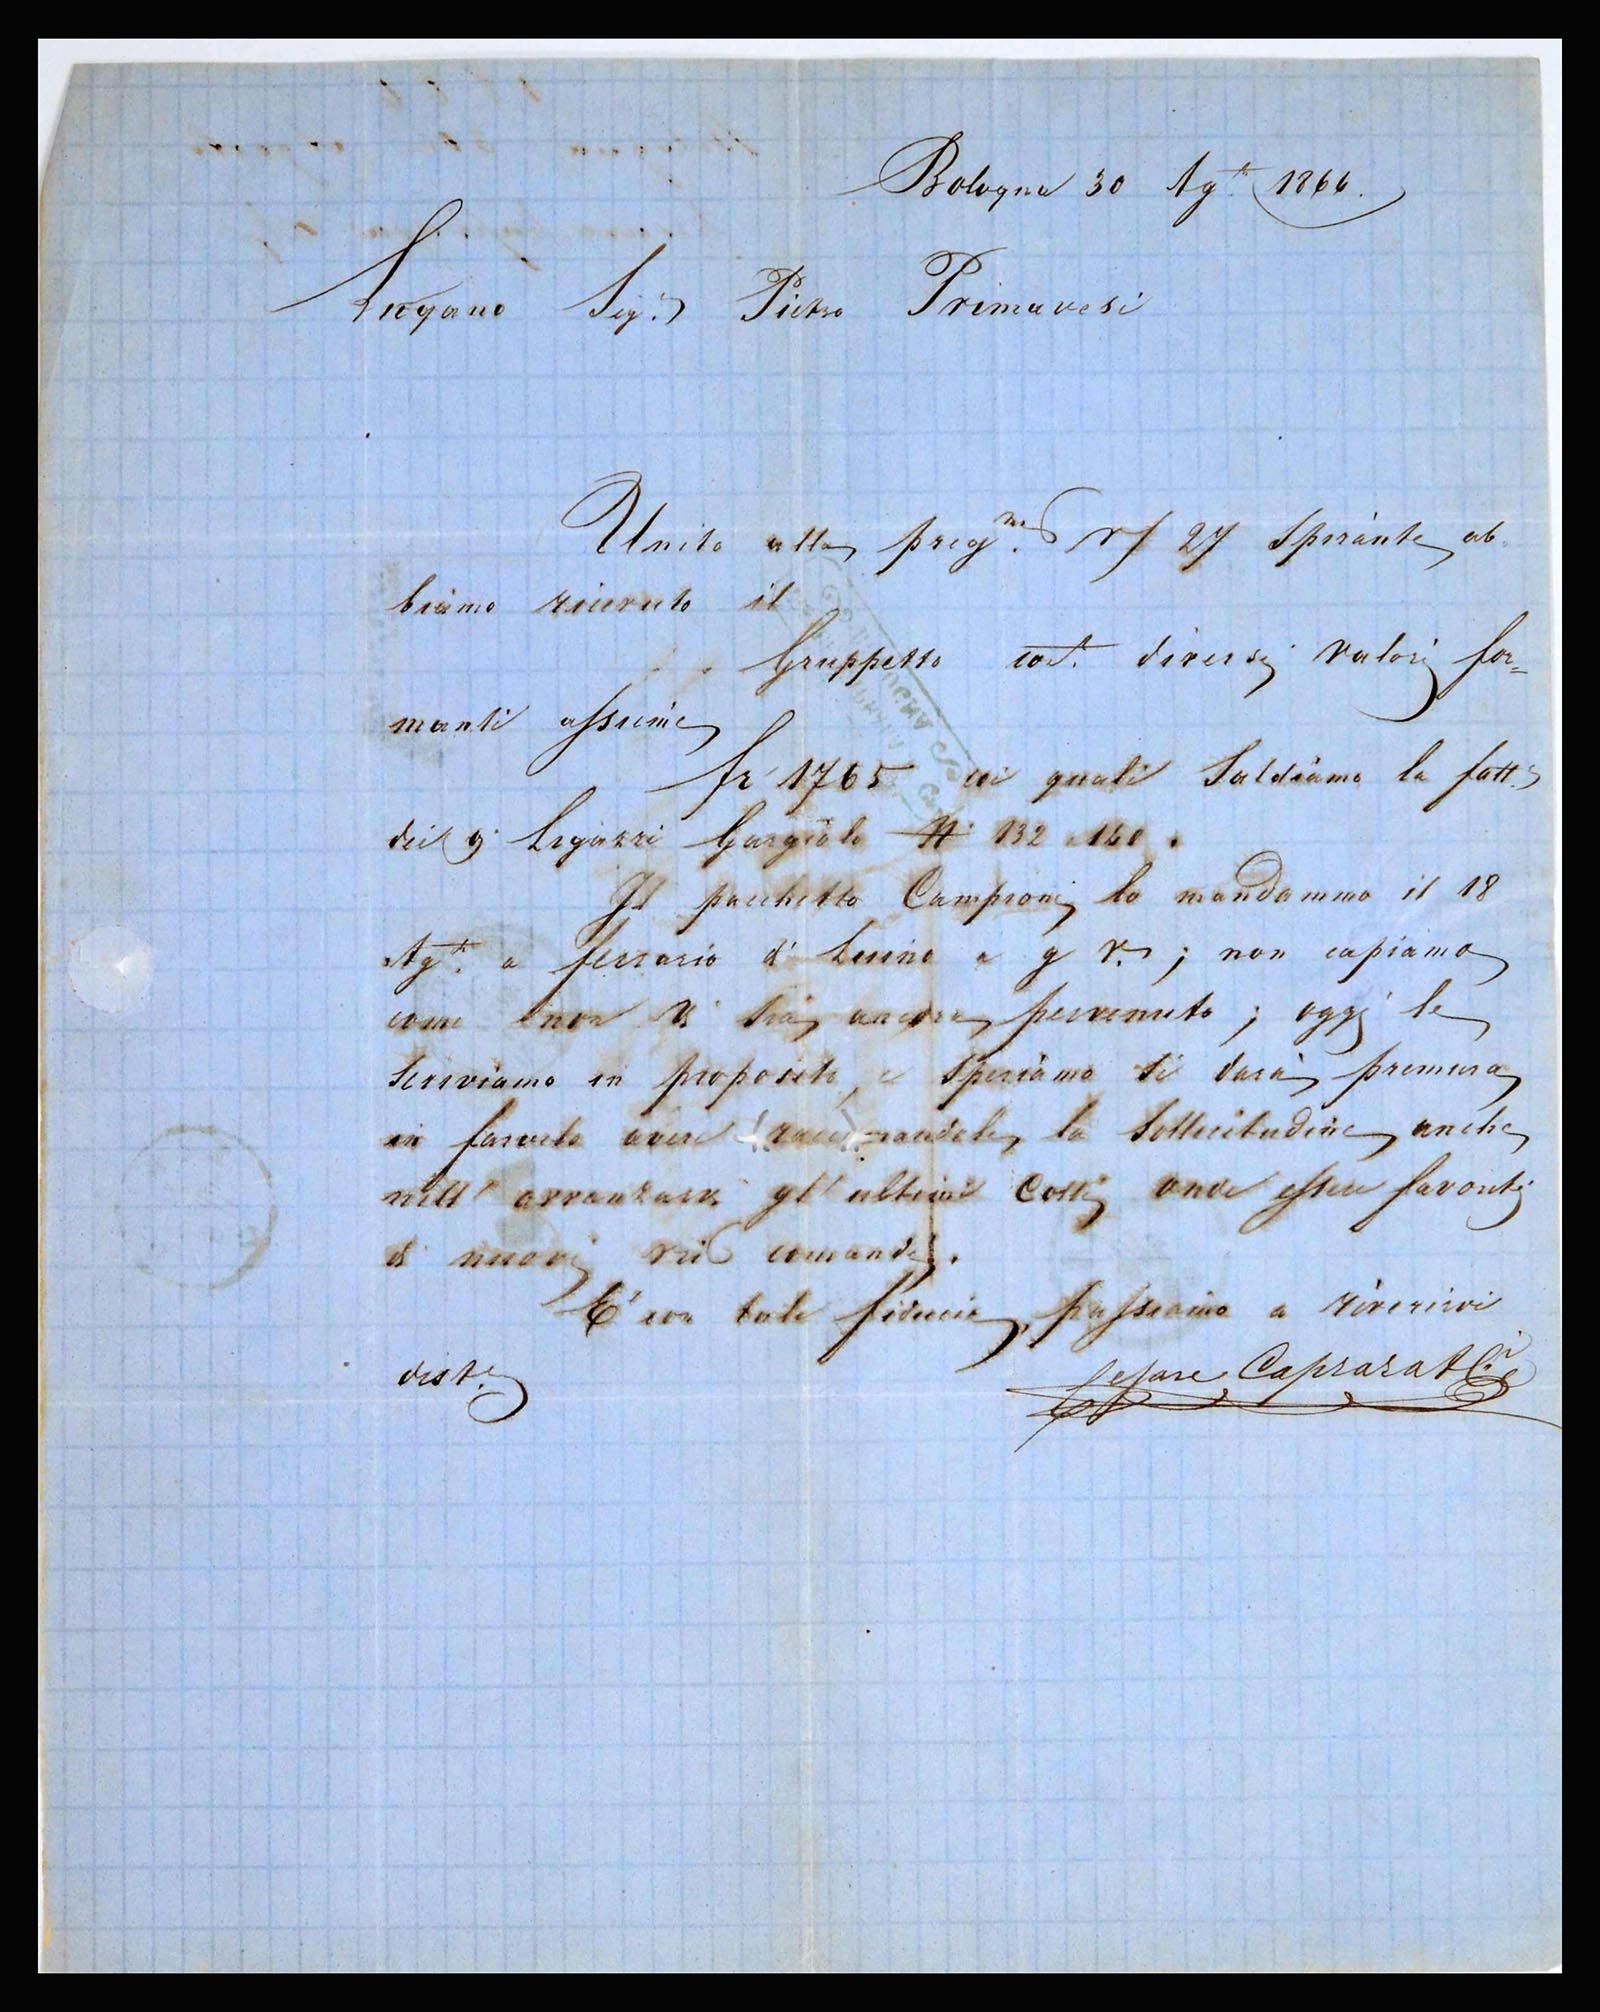 Bologna 30 Ag.to 1866.
Lugano Sig.r Pietro Primavesi
Unito alla preg.ma V/ 27 spirante ab-
biamo ricevuto il
Gruppetto cont. diversi valori for=
manti assieme
fr 1765 coi quali Saldiamo la fatt.
dei Ligazzi Gargiolo N. 132 140.
Il pacchetto Campioni lo mandammo il 18
Ag.to a Ferrario di Luino a g V.; non capiamo
come non Vi sia ancora pervenuto; oggi le
scriviamo in proposito, e speriamo si darà premura
in farvelo avere raccomandole la sollecitudine anche
nell' avanzarvi gl' ultimi Colli onde essere favoriti
di nuovi vri comandi.
E' con tale fiducia, passiamo a riverirvi
dist.e
Cesare Caprara & C.i